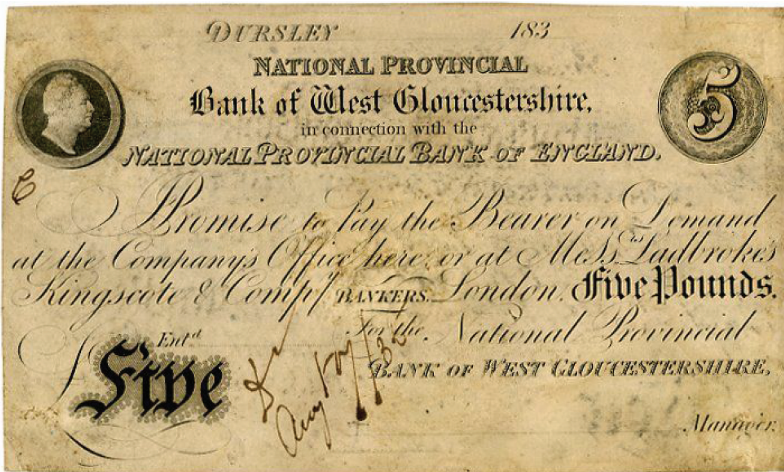 DURSLEY 183
NATIONAL PROVINCIAL
Bank of West Gloucestershire,
in connection with the
NATIONAL PROVINCIAL BANK OF ENGLAND.
5
I Promise to Pay the Bearer on Demand
at the Company's Office here, or at Mess.rs Ladbrokes
Kingscote & Comp.y BANKERS. London, Five Pounds.
For the National Provincial
BANK OF WEST GLOUCESTERSHIRE,
Ent.d
£Five
Manager.